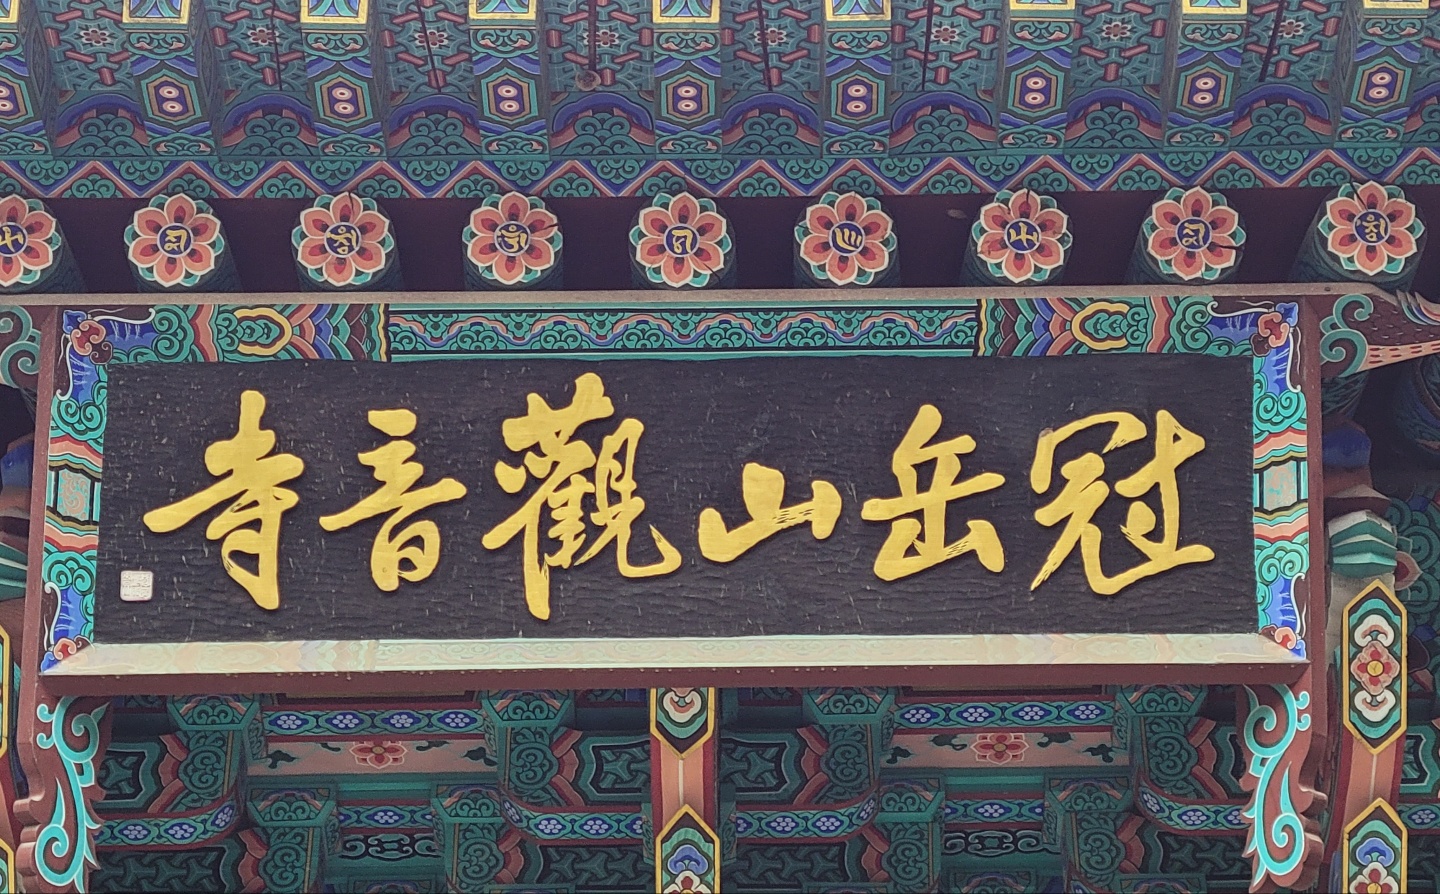 冠岳山觀音寺